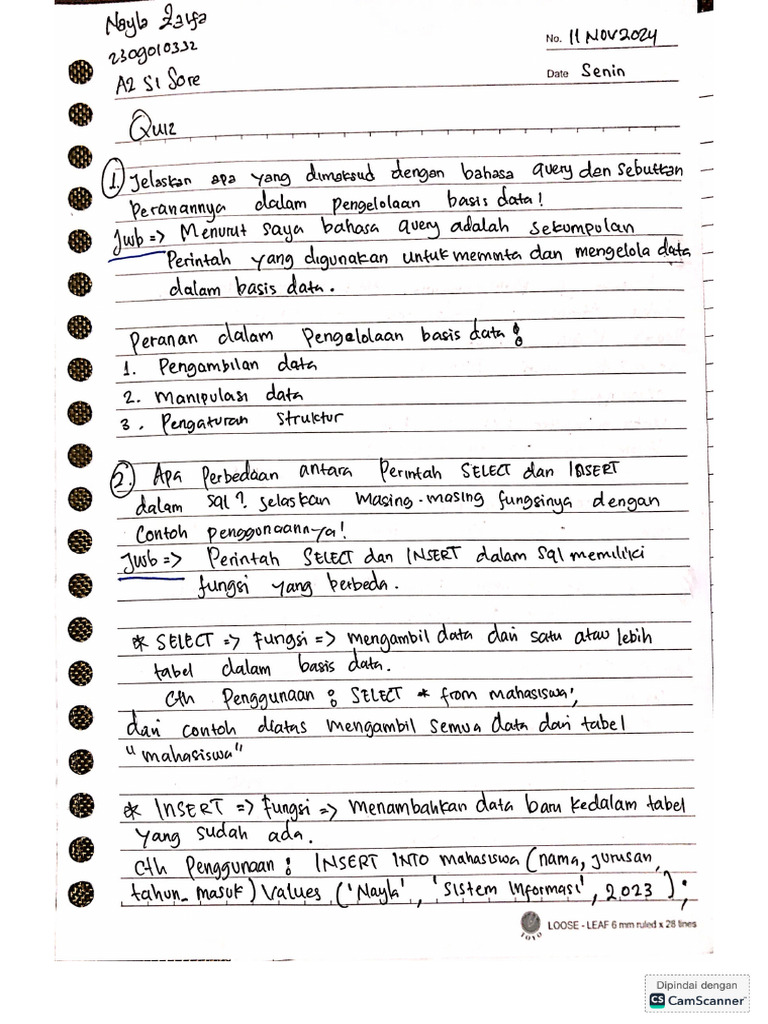 Nayla Zalfa
2309010332
A2 SI Sore
No. 11 Nov 2024
Date Senin
Quiz
1. Jelaskan apa yang dimaksud dengan bahasa query dan Sebutkan
Peranannya dalam pengelolaan basis data!
Jwb => Menurut saya bahasa query adalah sekumpulan
Perintah yang digunakan untuk meminta dan mengelola data
dalam basis data.
Peranan dalam Pengelolaan basis data :
1. Pengambilan data
2. Manipulasi data
3. Pengaturan Struktur
2. Apa Perbedaan antara Perintah SELECT dan INSERT
dalam sql? Jelaskan Masing-masing fungsinya dengan
Contoh penggunaannya!
Jwb => Perintah SELECT dan INSERT dalam sql memiliki
fungsi yang berbeda.
* SELECT => Fungsi => mengambil data dari satu atau lebih
tabel dalam basis data.
Cth Penggunaan : SELECT * from mahasiswa;
dari contoh diatas mengambil semua data dari tabel
"mahasiswa"
* INSERT => Fungsi => Menambahkan data baru kedalam tabel
yang sudah ada.
Cth Penggunaan : INSERT INTO mahasiswa (nama, jurusan,
tahun_masuk) Values ('Nayla', 'Sistem Informasi', 2023);
TOYO
LOOSE - LEAF 6 mm ruled x 28 lines
Dipindai dengan
CS CamScanner